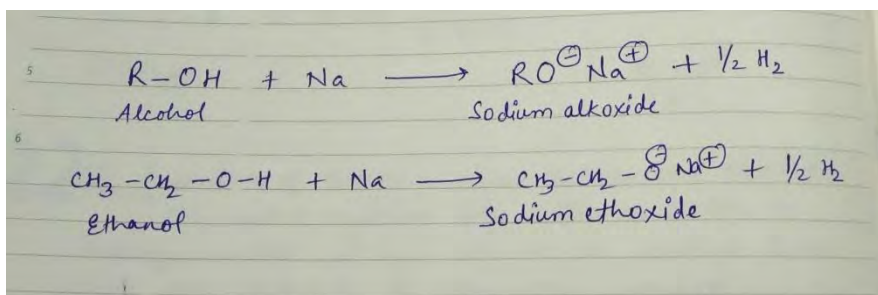 5
R-OH + Na ⟶ RO⊖ Na⊕ + 1/2 H₂
Alcohol Sodium alkoxide
6
CH₃-CH₂-O-H + Na ⟶ CH₃-CH₂-O⊖ Na⊕ + 1/2 H₂
Ethanol Sodium ethoxide